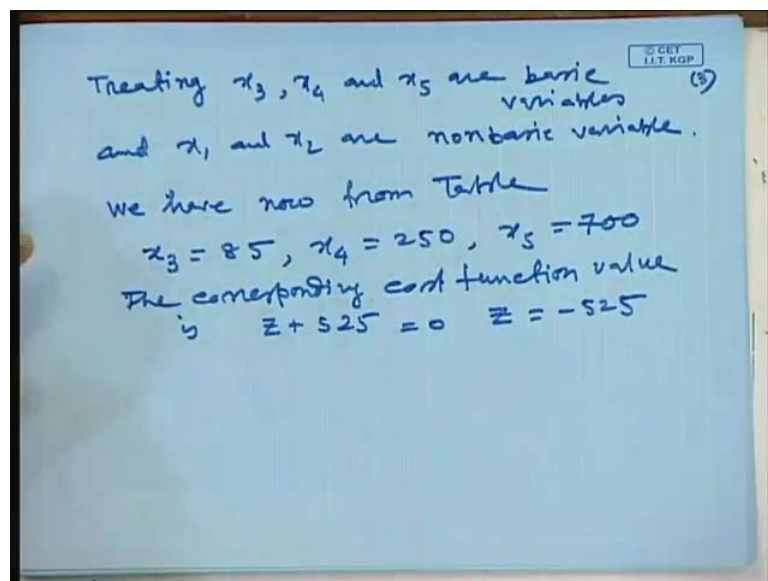 © CET
I.I.T. KGP
Treating x₃, x₄ and x₅ are basic (3)
variables
and x₁ and x₂ are nonbasic variable.
We have now from Table
x₃ = 85, x₄ = 250, x₅ = 700
The corresponding cost function value
is z + 525 = 0 z = -525